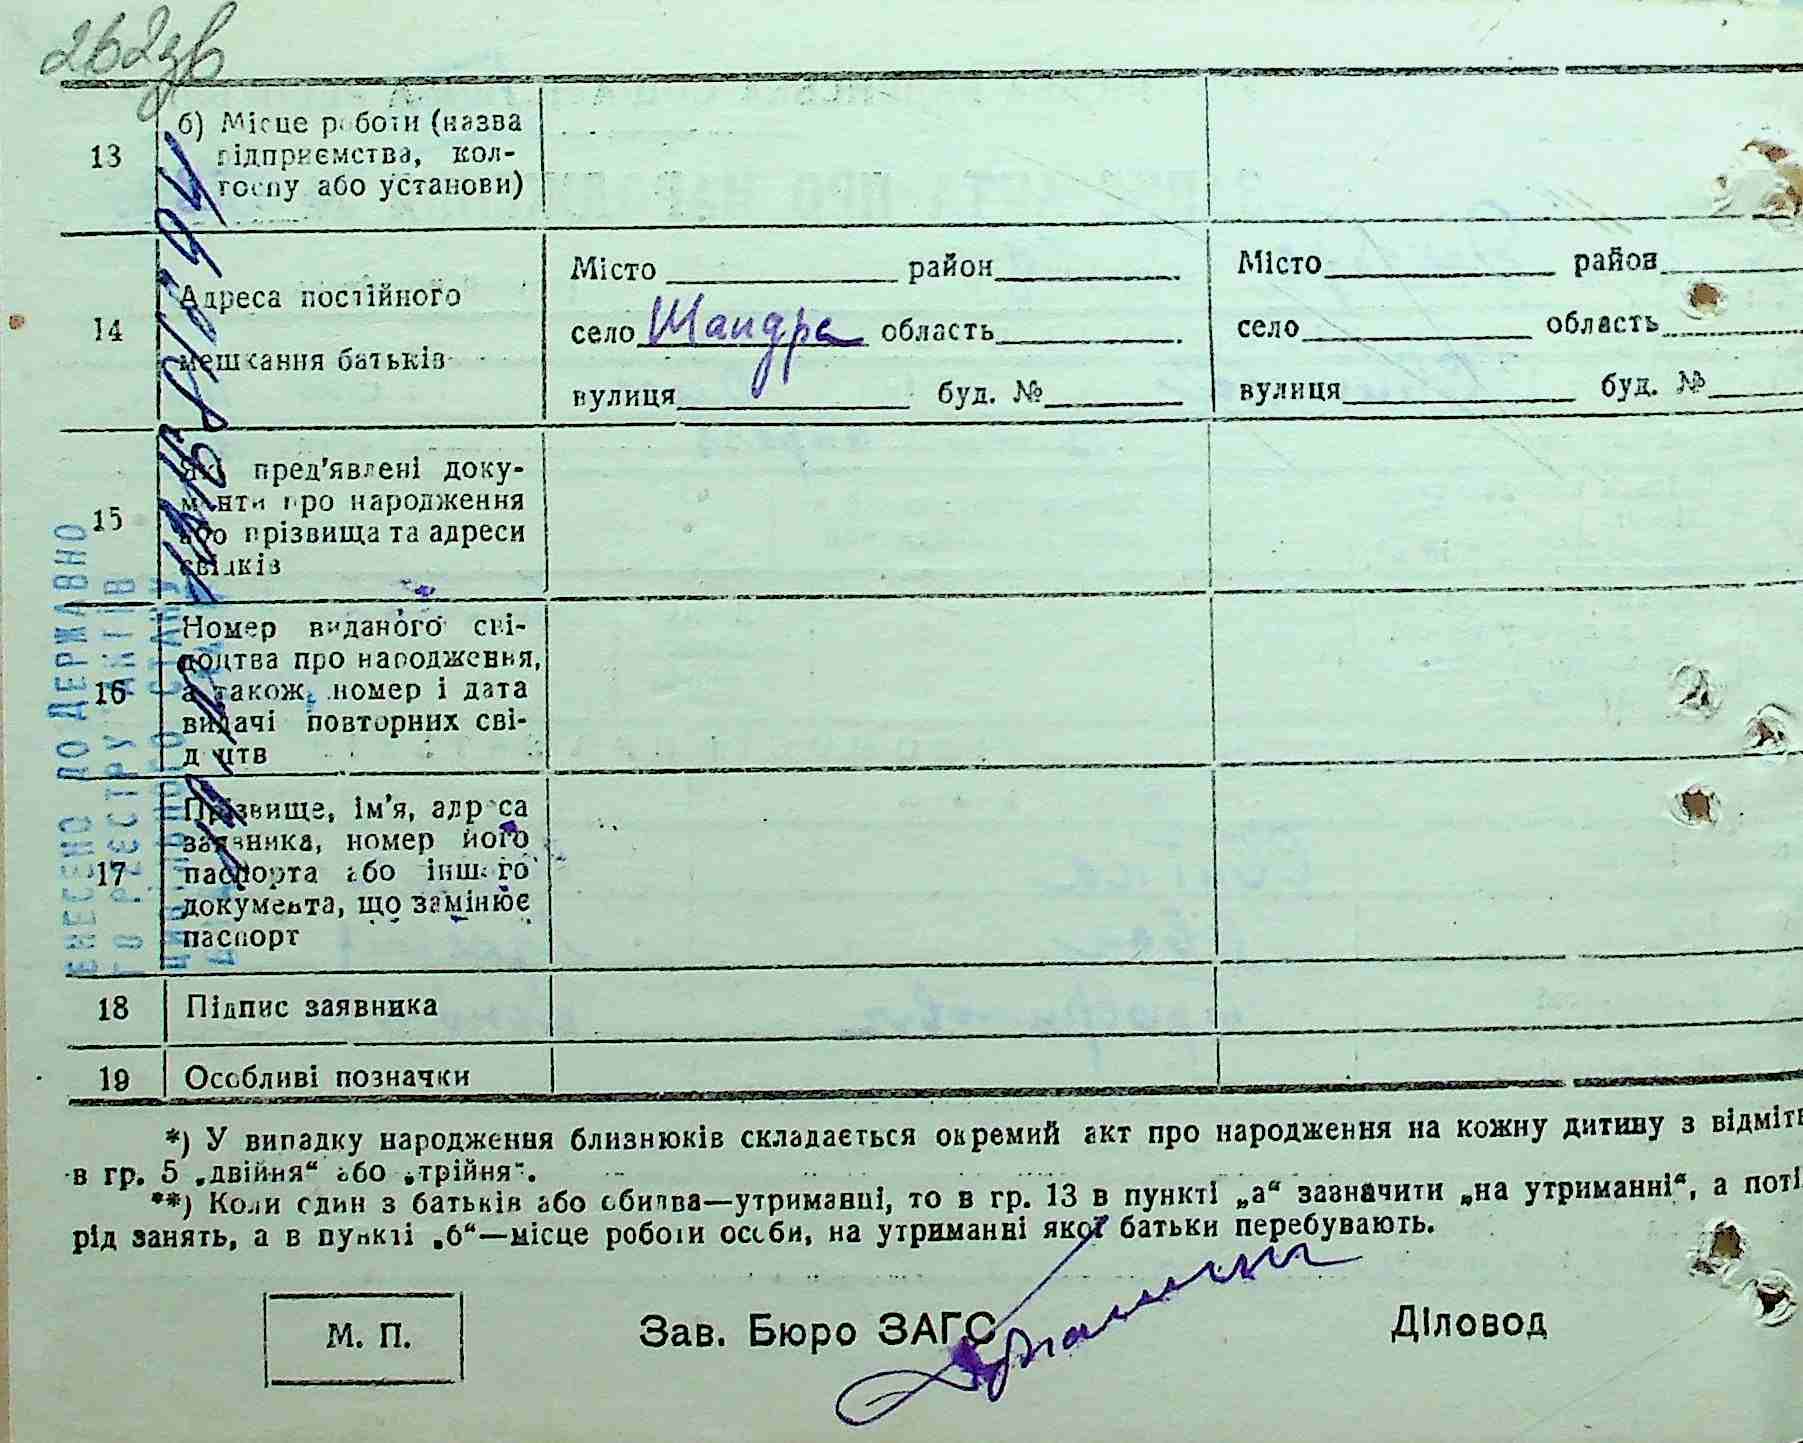 262зв
13
б) Місце роботи (назва
підприємства, кол-
госпу або установи)
14
Адреса постійного
мешкання батьків
Місто район
село Шандра область
вулиця буд. №
Місто район
село область
вулиця буд. №
15
Які пред'явлені доку-
менти про народження
або прізвища та адреси
свідків
16
Номер виданого сві-
доцтва про народження,
а також номер і дата
видачі повторних сві-
доцтв
17
Прізвище, ім'я, адреса
заявника, номер його
паспорта або іншого
документа, що замінює
паспорт
18 Підпис заявника
19 Особливі позначки
*) У випадку народження близнюків складається окремий акт про народження на кожну дитину з відміт
в гр. 5 „двійня“ або „трійня“.
**) Коли один з батьків або обидва—утриманці, то в гр. 13 в пункті „а“ зазначити „на утриманні“, а поті
рід занять, а в пункті „б“—місце роботи особи, на утриманні якої батьки перебувають.
М. П.
Зав. Бюро ЗАГС
Діловод
ВНЕСЕНО ДО ДЕРЖАВНО
ГО РЕЄСТРУ АКТІВ
ЦИВІЛЬНОГО СТАНУ